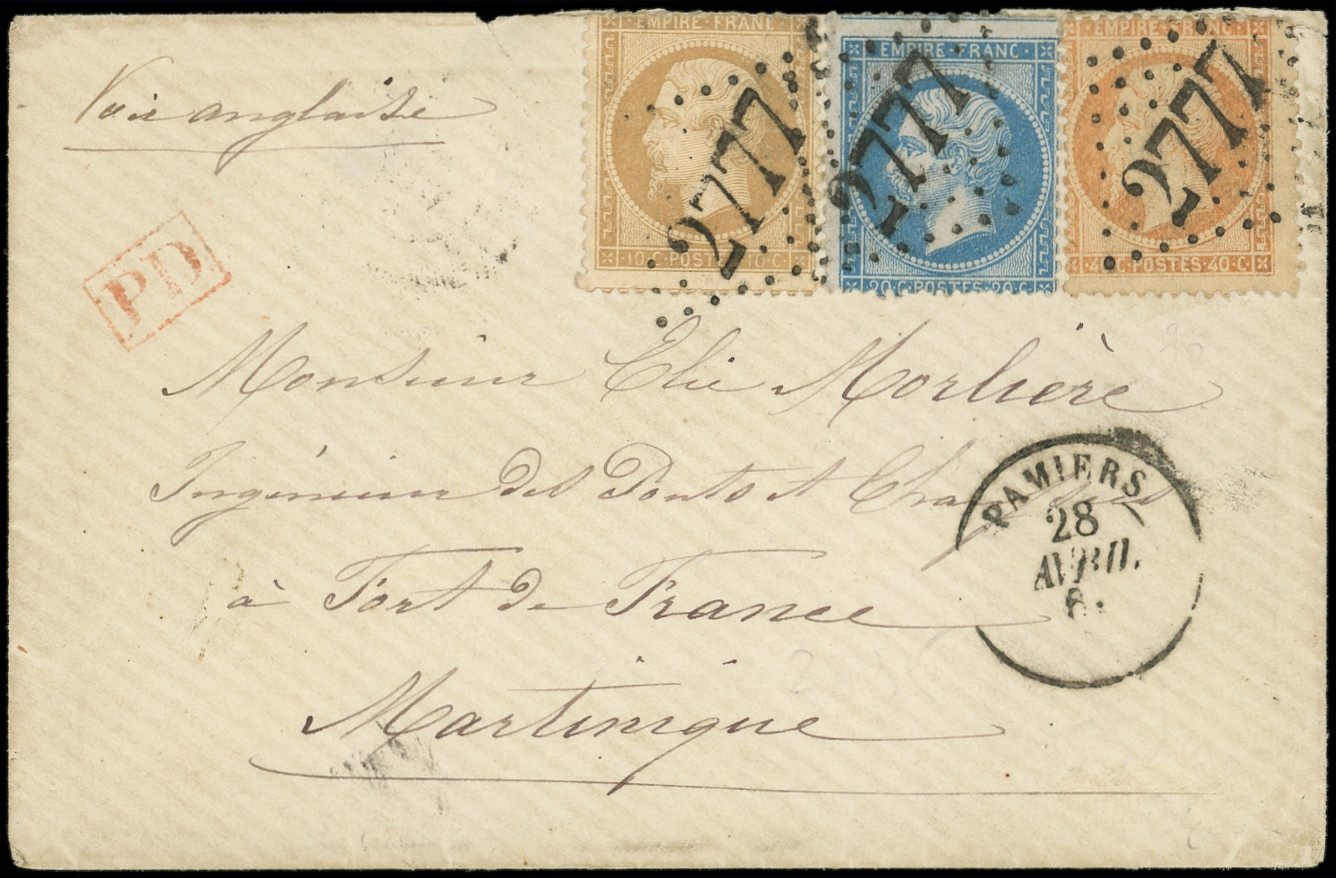 EMPIRE FRANC
EMPIRE FRANC
EMPIRE FRANC
2777
2777
2777
10 C POSTES 10 C
20 C POSTES 20 C
40 C POSTES 40 C
Voie anglaise
PD
Monsieur Elie Morlière
Ingénieur des Ponts et Chaussées
à Fort de France
Martinique
PAMIERS
28
AVRIL